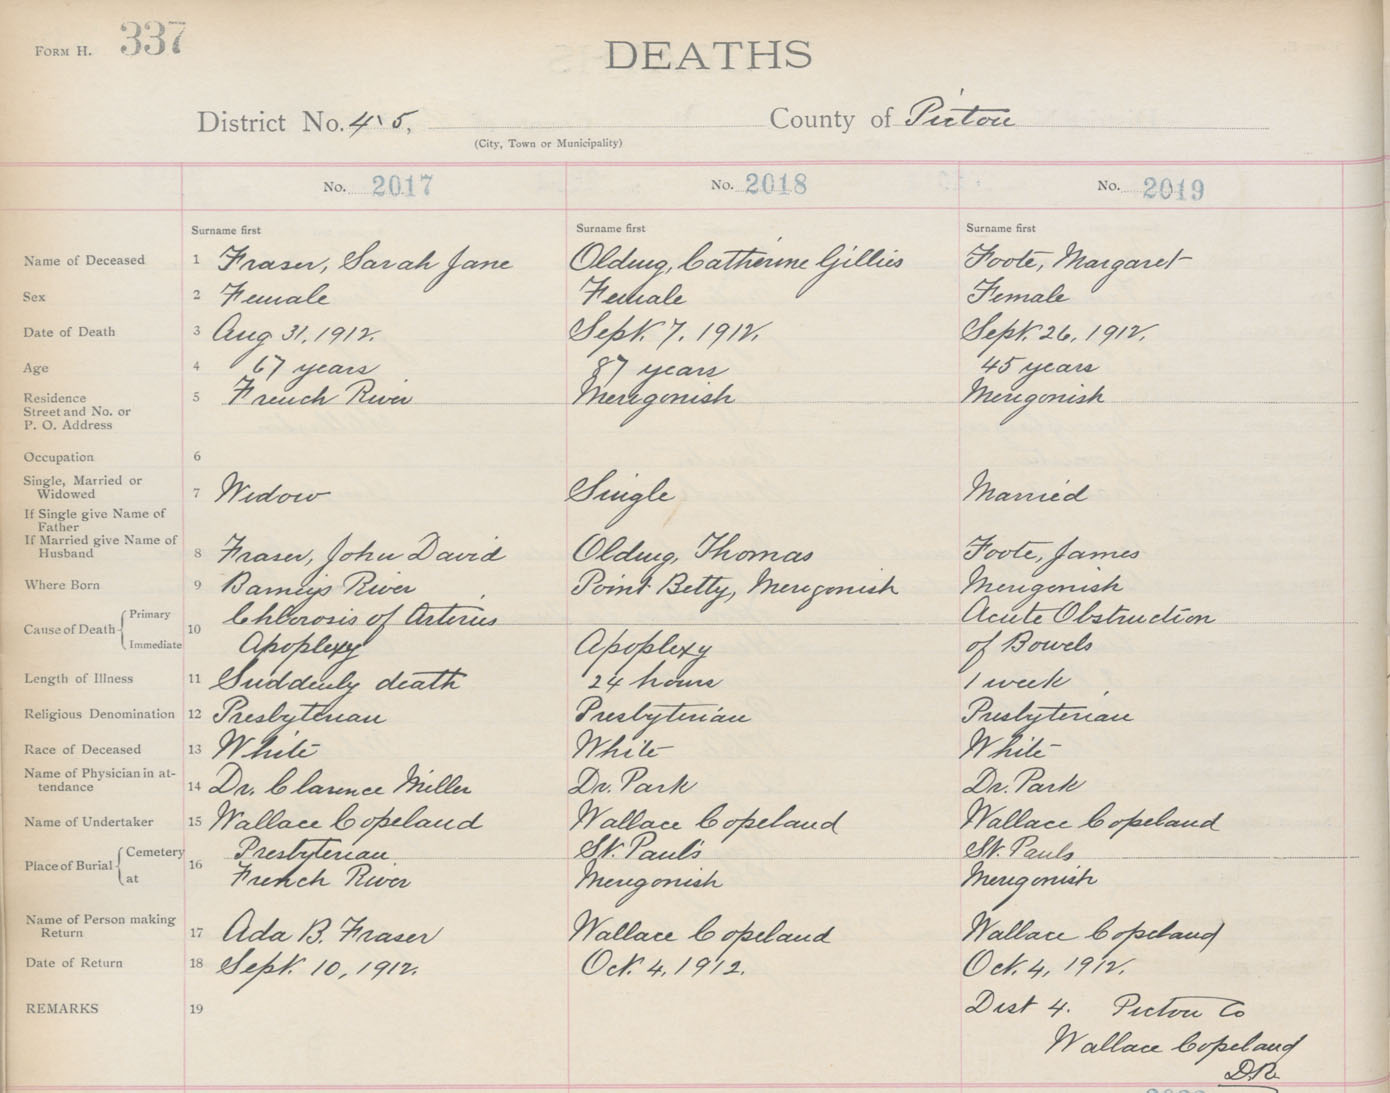 FORM H. 337
DEATHS
District No. 4 5, County of Pictou
(City, Town or Municipality)
No. 2017 No. 2018 No. 2019
Surname first Surname first Surname first
Name of Deceased 1 Fraser, Sarah Jane Olding, Catherine Gillies Foote, Margaret
Sex 2 Female Female Female
Date of Death 3 Aug 31, 1912. Sept. 7, 1912. Sept. 26, 1912.
Age 4 67 years 87 years 45 years
Residence 5 French River Merigonish Merigonish
Street and No. or
P. O. Address
Occupation 6
Single, Married or
Widowed 7 Widow Single Married
If Single give Name of
Father
If Married give Name of
Husband 8 Fraser, John David Olding, Thomas Foote, James
Where Born 9 Barneys River Point Betty, Merigonish Merigonish
Cause of Death 10 Primary Chlorosis of Arteries Acute Obstruction
Immediate Apoplexy Apoplexy of Bowels
Length of Illness 11 Suddenly death 24 hours 1 week
Religious Denomination 12 Presbyterian Presbyterian Presbyterian
Race of Deceased 13 White White White
Name of Physician in at-
tendance 14 Dr. Clarence Miller Dr. Park Dr. Park
Name of Undertaker 15 Wallace Copeland Wallace Copeland Wallace Copeland
Place of Burial 16 Cemetery Presbyterian St. Paul's St. Pauls
at French River Merigonish Merigonish
Name of Person making
Return 17 Ada B. Fraser Wallace Copeland Wallace Copeland
Date of Return 18 Sept. 10, 1912. Oct. 4, 1912. Oct. 4, 1912.
REMARKS 19 Dist 4. Pictou Co
Wallace Copeland
D.R.